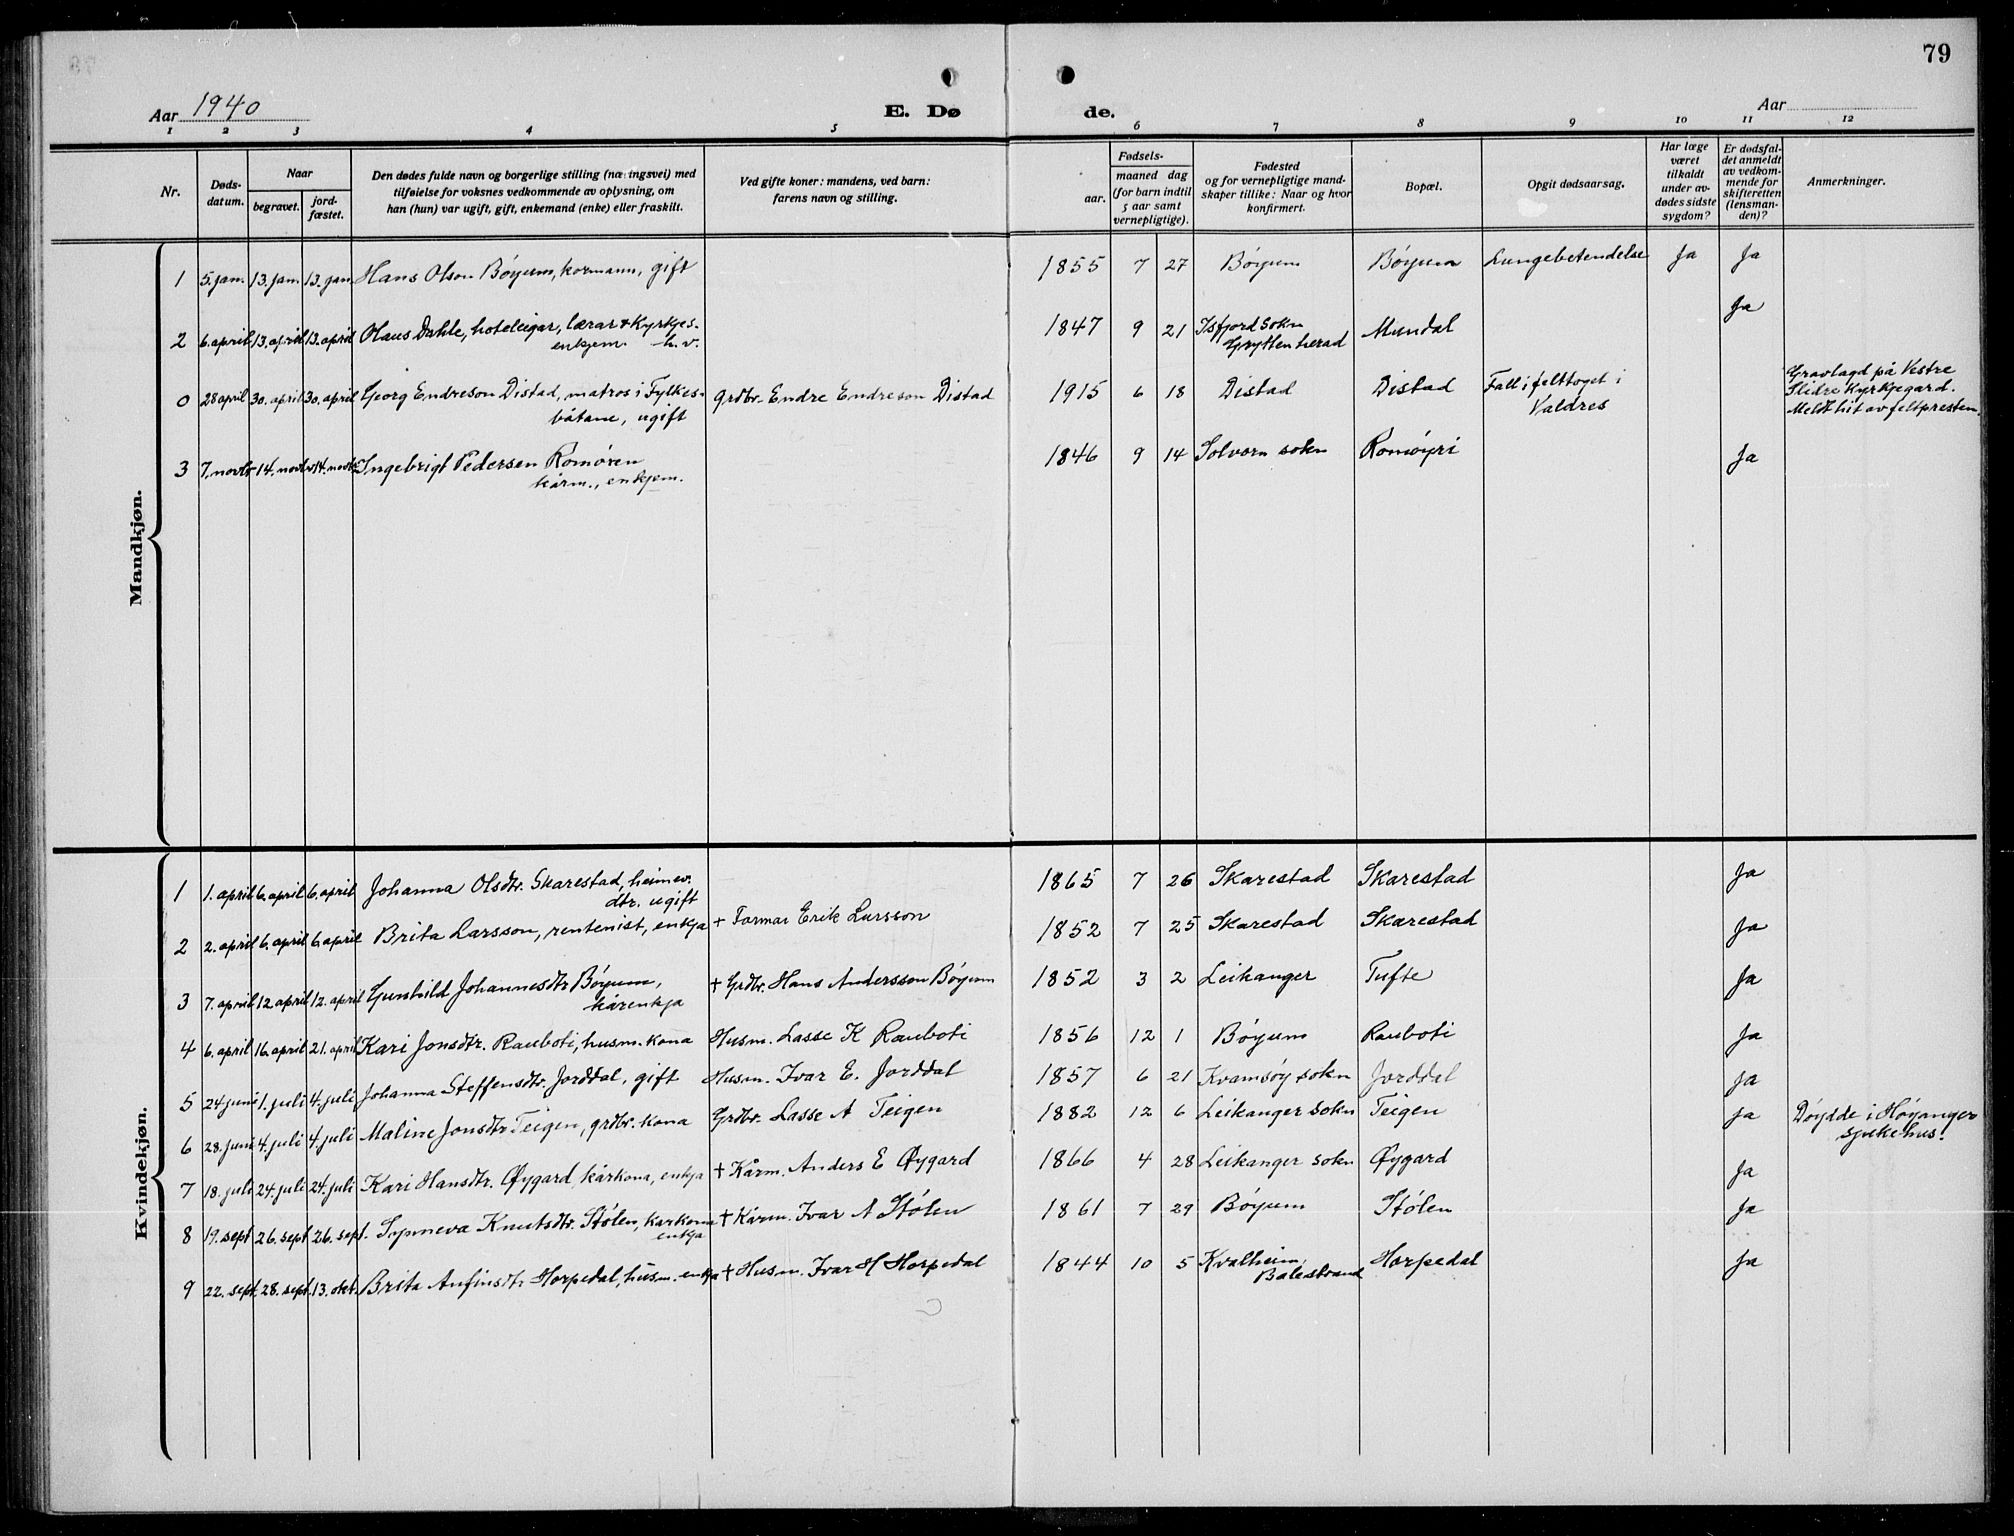 79
Aar 1940 E. Dø de. Aar
1 2 3 4 5 6 7 8 9 10 11 12
Nr.
Døds-
datum.
Naar
begravet.
jord-
fæstet.
Den dødes fulde navn og borgerlige stilling (næringsvei) med
tilføielse for voksnes vedkommende av oplysning, om
han (hun) var ugift, gift, enkemand (enke) eller fraskilt.
Ved gifte koner: mandens, ved barn:
farens navn og stilling.
Fødsels-
aar.
maaned dag
(for barn indtil
5 aar samt
vernepligtige).
Fødested
og for vernepligtige mand-
skaper tillike: Naar og hvor
konfirmert.
Bopæl.
Opgit dødsaarsag.
Har læge
været
tilkaldt
under av-
dødes sidste
sygdom?
Er dødsfal-
det anmeldt
av vedkom-
mende for
skifteretten
(lensman-
den)?
Anmerkninger.
Mandkjøn.
1 5. jan. 13. jan. 13. jan. Hans Olson Bøyum, kårmann, gift 1855 7 27 Bøyum Bøyum Lungebetendelse Ja Ja
2 6. april 13. april 13. april Olaus Dahle, hoteleigar, lærar & Kyrkjes.
enkjem. h.v.
1847 9 21 Isfjord sokn
Grytten herad
Mundal Ja
0 28 april 30. april 30. april Georg Endreson Distad, matros i Fylkes-
båtane, ugift
grdbr. Endre Endreson Distad 1915 6 18 Distad Distad Fall i felttoget i
Valdres
Gravlagd på Vestre
Slidre Kyrkjegard.
Meldt hit av feltpresten.
3 7. novbr 14. novbr 14. novbr Ingebrigt Pedersen Romøren
kårm., enkjem.
1846 9 14 Solvorn sokn Romøyri Ja
Kvindekjøn.
1 1. april 6. april 6. april Johanna Olsdtr. Skarestad, heimev.
dtr. ugift
1865 7 26 Skarestad Skarestad Ja
2 2. april 6. april 6. april Brita Larsson, rentenist, enkja + Farmar Erik Larsson 1852 7 25 Skarestad Skarestad Ja
3 7. april 12 april 12. april Gunhild Johannesdtr Bøyum,
kårenkja
+ Grdbr. Hans Andersson Bøyum 1852 3 2 Leikanger Tufte Ja
4 6. april 16. april 21. april Kari Jonsdtr. Rauboti, husm. kona Husm. Lasse K Rauboti 1856 12 1 Bøyum Rauboti Ja
5 24 juni 1. juli 4. juli Johanna Steffensdtr. Jorddal, gift Husm. Ivar E. Jorddal 1857 6 21 Kvamsøy sokn Jorddal Ja
6 28. juni 4. juli 4. juli Maline Jonsdtr Teigen, grdbr. kona Grdbr. Lasse A Teigen 1882 12 6 Leikanger sokn Teigen Ja Døydde i Høyanger
sjukehus.
7 18. juli 24. juli 24. juli Kari Hansdtr. Øygard, kårkona, enkja + Kårm. Anders E Øygard 1866 4 28 Leikanger sokn Øygard Ja
8 19. sept 26. sept 26. sept. Synneva Knutsdtr. Stølen, kårkona
enkja
+ Kårm. Ivar A Stølen 1861 7 29 Bøyum Stølen Ja
9 22. sept. 28. sept. 13. okt. Brita Anfinsdtr Horpedal, husm. enkja + Husm. Ivar H Horpedal 1844 10 5 Kvalheim,
Balestrand
Horpedal Ja